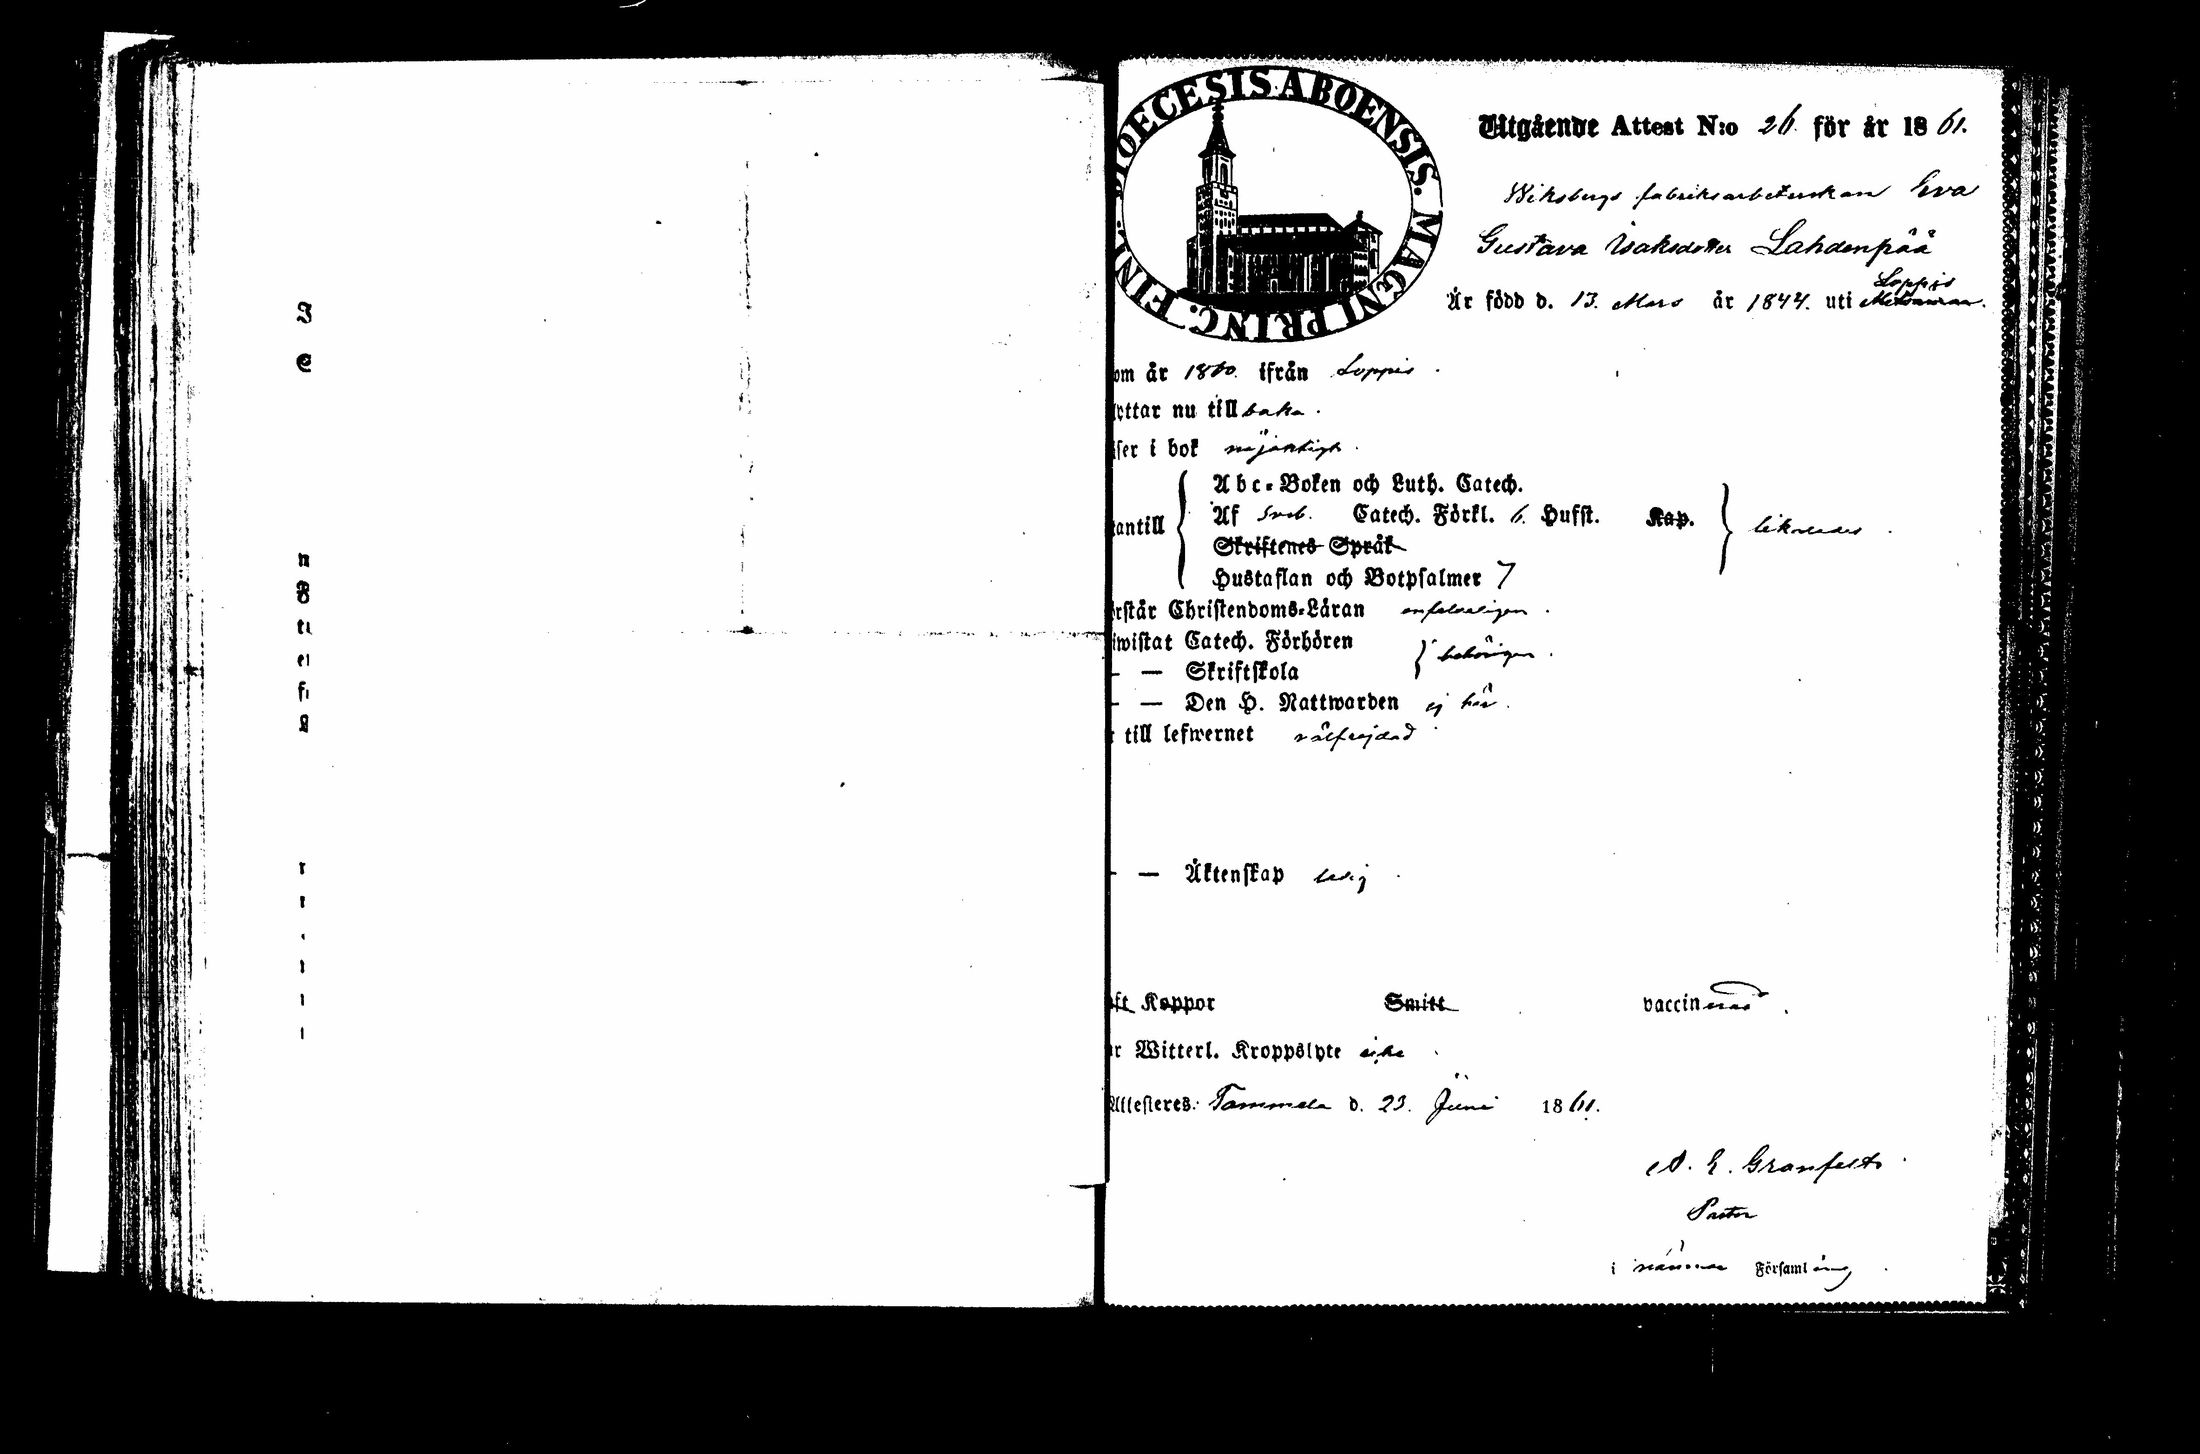 DIOECESIS ABOENSIS. MAGNI PRINC. FINL.
Utgående Attest N:o 26. för år 1861.
Wiksbergs fabriksarbeterskan Eva
Gustava Isaksdotter Lahdenpää
Loppis
Är född d. 13. Mars år 1844. uti
om år 1860. ifrån Loppis.
yttar nu tillbaka.
äser i bok nöjaktigt.
Abc-Boken och Luth. Catech.
utantill Af Sveb. Catech. Förkl. 6. Hufst. Kap. likaledes.
Skriftenes Språk
Hustaflan och Botpsalmer 7
rstår Christendoms-Läran enfaldeligen.
iwistat Catech. Förhören
behörigen.
— — Skriftskola
— — Den H. Nattwarden ej här.
r till lefwernet välfrejdad
— — Äktenskap ledig.
ft Koppor Smitt vaccinerad.
r Witterl. Kroppslyte icke.
Attesteres. Tammela d. 23. Juni 1861.
A. E. Granfelt
Pastor
i nämnde Församling.